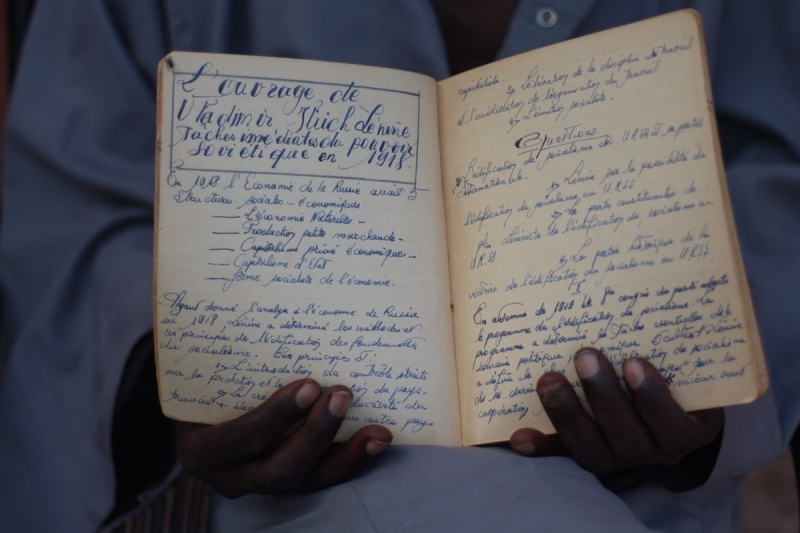 L'ouvrage de
Vladimir Iliich Lénine
Taches immédiates du pouvoir
Soviétique en 1918.
En 1918 l'Economie de la Russie avait 5
Structures sociales-économiques.
— L'économie Naturelle-
— Production petite marchande-
— Capitalisme privé économique-
— Capitalisme d'Etat
— forme socialiste de l'économie.
Ayant donné l'analyse à l'économie de Russie
en 1918 Lénine a déterminé les méthodes et
les principes de l'édification des fondements
du socialisme. Ces principes st:
1°) L'introduction du contrôle stricte
sur la production et la du pays-
2°) La
travail pays
capitaliste. 3°) Elévation de la discipline de travail
et l'amélioration de l'organisation du travail
4°) L'émulation socialiste.
Questions
L'édification du socialisme en U.R.SS et sa portée
internationale.
1°) Lénine par la possibilité de
l'édification du socialisme en U.R.SS
2°) La parti constituantes du
plan léniniste de l'édification du socialisme en
U.R.SS
3°) La portée historique de la
victoire de l'édification du socialisme en U.R.SS
En automne de 1919 le 8e congrès du parti adopta
le programme de l'édification du socialisme. Le
programme a déterminé les Tâches essentielles ds le
domaine politique économique Culturel. Lénine
a définit le plan du socialisme
de la par la
coopération mieux vaut